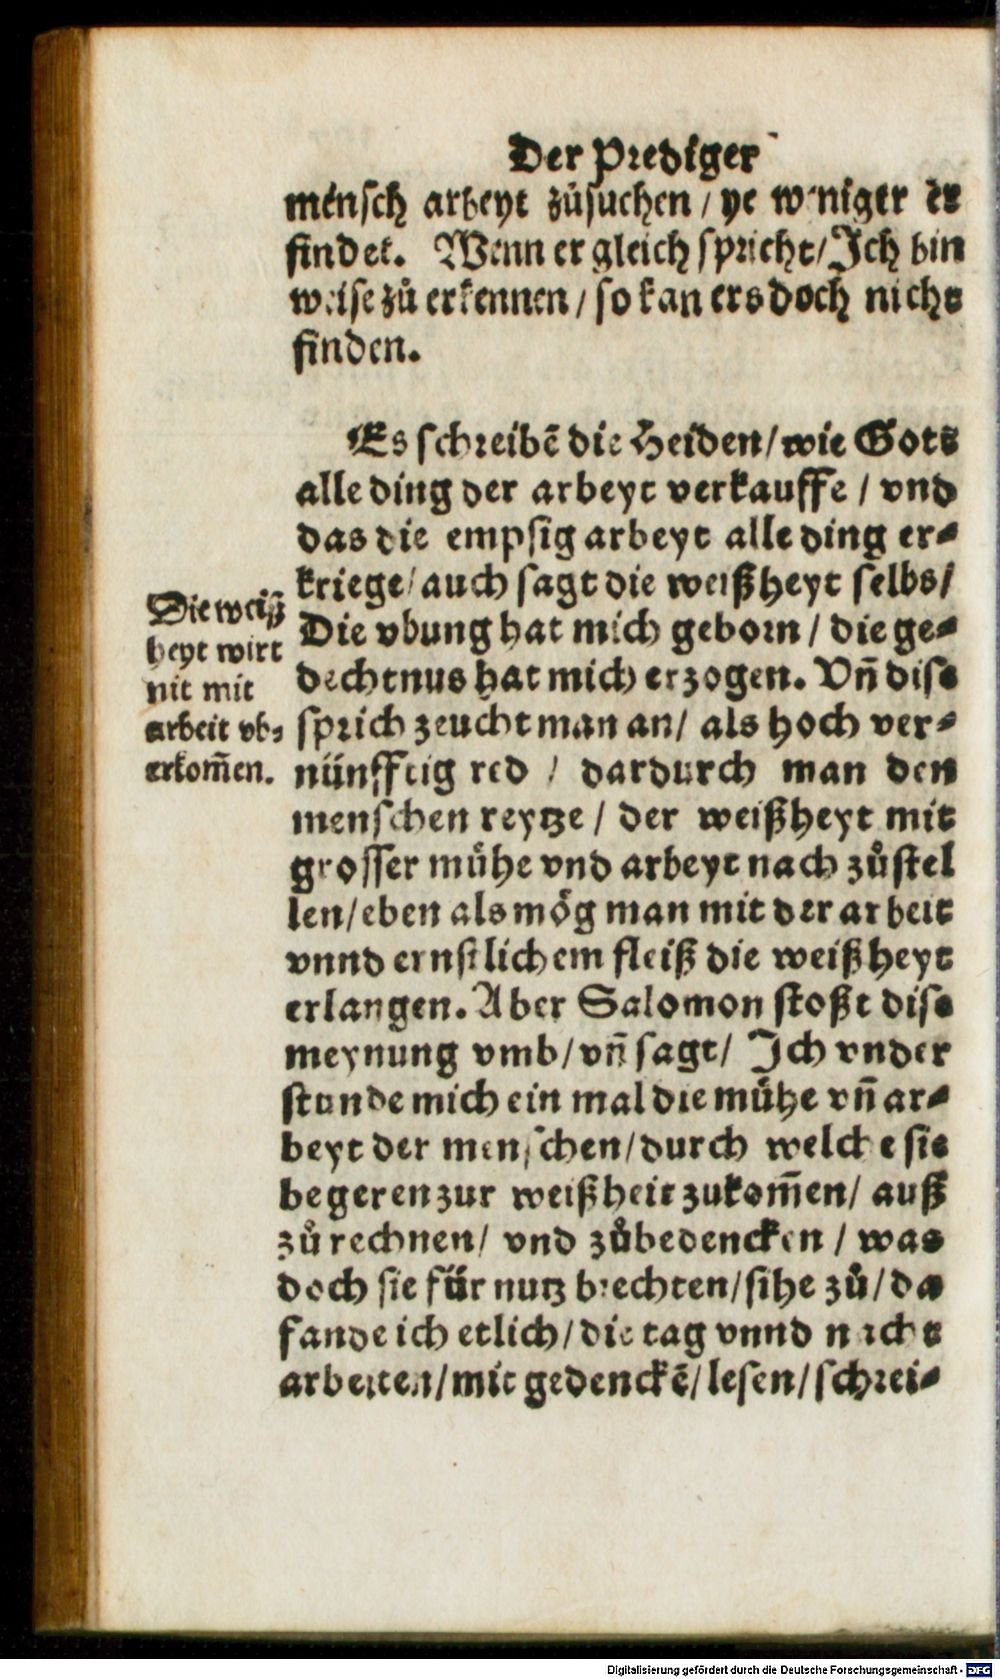 Der Prediger
mensch arbeyt zůsuchen / ye weniger er
findet. Wenn er gleich spricht / Ich bin
weise zů erkennen / so kan ers doch nicht
finden.
Es schreibē die Heiden / wie Gots
alle ding der arbeyt verkauffe / vnd
das die empsig arbeyt alle ding er-
kriege / auch sagt die weißheyt selbs /
Die vbung hat mich geborn / die ge-
dechtnus hat mich erzogen. Vn̄ dise
sprich zeucht man an / als hoch ver-
nünfftig red / dardurch man den
menschen reytze / der weißheyt mit
grosser mühe vnd arbeyt nach zůstel
len / eben als mög man mit der arbeit
vnnd ernstlichem fleiß die weißheyt
erlangen. Aber Salomon stoßt dise
meynung vmb / vn̄ sagt / Ich vnder
stunde mich ein mal die mühe vn̄ ar-
beyt der menschen / durch welche sie
begeren zur weißheit zukom̄en / auß
zů rechnen / vnd zůbedencken / was
doch sie für nutz brechten / sihe zů / da
fande ich etlich / die tag vnnd nacht
arbeiten / mit gedenckē / lesen / schrei-
Die weiß
heyt wirt
nit mit
arbeit vb-
erkom̄en.
Digitalisierung gefördert durch die Deutsche Forschungsgemeinschaft - DFG